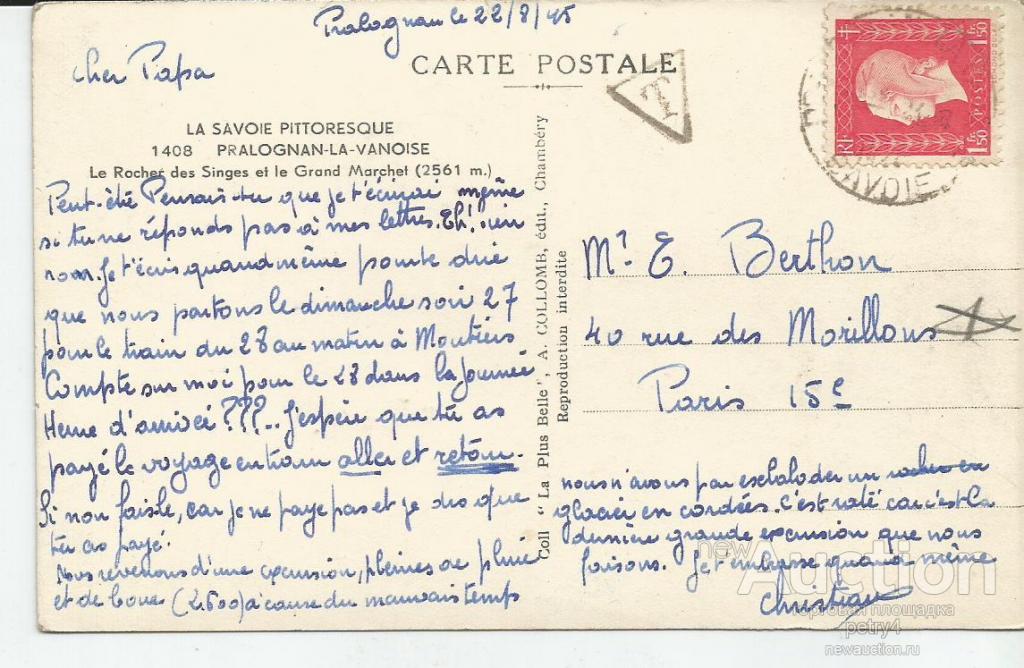 Pralognan le 22/8/45
Cher Papa
CARTE POSTALE
T
LA SAVOIE PITTORESQUE
1408 PRALOGNAN-LA-VANOISE
Le Rocher des Singes et le Grand Marchet (2561 m.)
Peut-être Pensais-tu que je t'écrirai même
si tu ne réponds pas à mes lettres. Eh! bien
non. Je t'écris quand même pour te dire
que nous partons le dimanche soir 27
pour le train du 28 au matin à Moutiers
Compte sur moi pour le 28 dans la journée
Heure d'arrivée ???.. J'espère que tu as
payé le voyage en train aller et retour.
Si non fais-le, car je ne paye pas et je dis que
tu as payé.
Nous revenons d'une excursion, pleines de pluie
et de boue (2.600) à cause du mauvais temps
Coll "La Plus Belle", A. COLLOMB, édit., Chambéry
Reproduction interdite
RF
POSTES
1F50
1F50
SAVOIE
Mr E. Berthon
40 rue des Morillons
Paris 15e
nous n'avons pas eschalader un
glacier en cordées. C'est raté car c'est la
dernière grande excursion que nous
faisons. Je t'embrasse quand même
Christian
newAuction
торговая площадка
petry4
newauction.ru